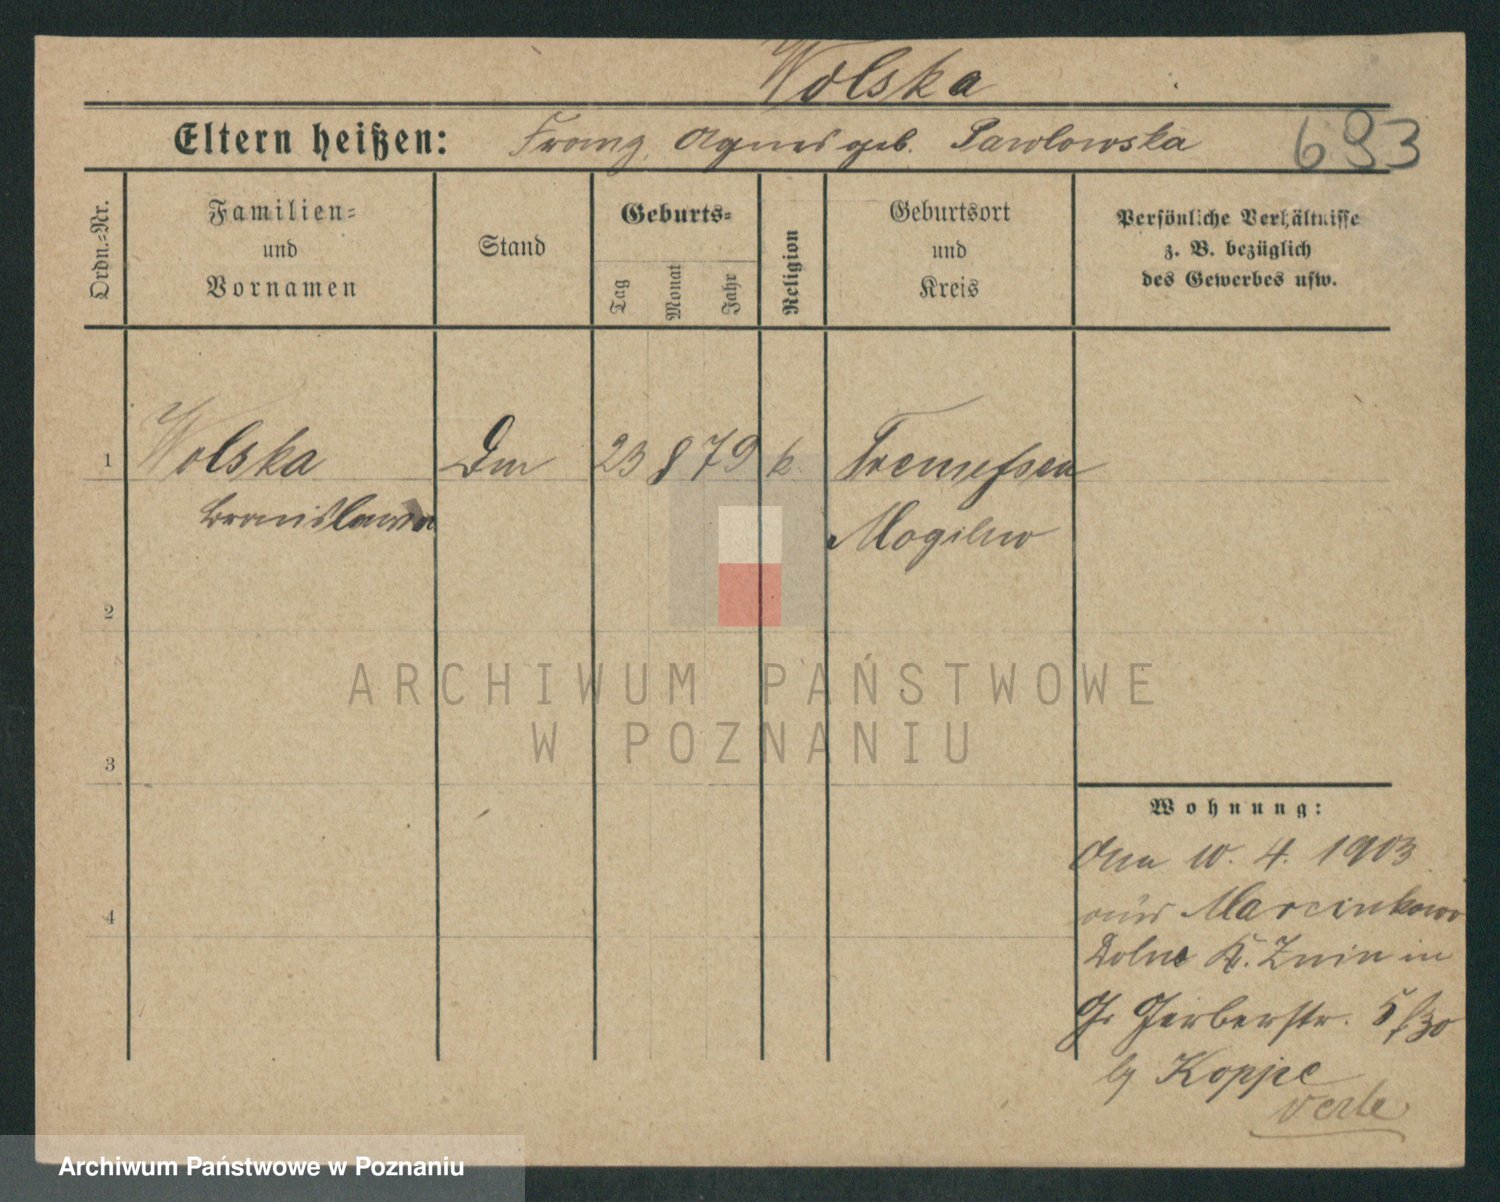 Wolska
Eltern heißen: Franz, Agnes geb. Pawlowska 693
Ordn.-Nr.
Familien-
und
Vornamen
Stand
Geburts-
Tag
Monat
Jahr
Religion
Geburtsort
und
Kreis
Persönliche Verhältnisse
z. B. bezüglich
des Gewerbes usw.
1 Wolska 23 8 79 k. Tremessen
Bronislawa
Mogilno
2
3
4
ARCHIWUM PAŃSTWOWE
W POZNANIU
Wohnung:
10. 4. 1903
aus Marcinkowo
Dolne K. Znin in
Gr Gerberstr.
Koppe
Archiwum Państwowe w Poznaniu